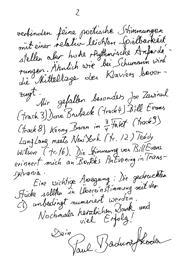 2
verbinden feine poetische Stimmungen
mit einer relativ leichten Spielbarkeit
stellen aber hohe rhythmische Anforde-
rungen. Ähnlich wie bei Schumann wird
die Mittellage des Klaviers bevor-
zugt.
Mir gefallen besonders Joe Zawinul
(track 3) Dave Brubeck (track 4) Bill Evans
(track 8) Kenny Barron in Takt (track 9)
Lang Lang meets New York (Tr. 12) Teddy
Wilson (Tr. 16). Die Stimmung von Bill Evans
erinnert mich an Bartóks in Trans-
sylvania.
Eine wichtige Anregung: Die gedruckten
Stücke sollten in Übereinstimmung mit der
unbedingt numeriert werden.
Nochmals herzlichen Dank und
viel Erfolg!
Dein
Paul Badura-Skoda